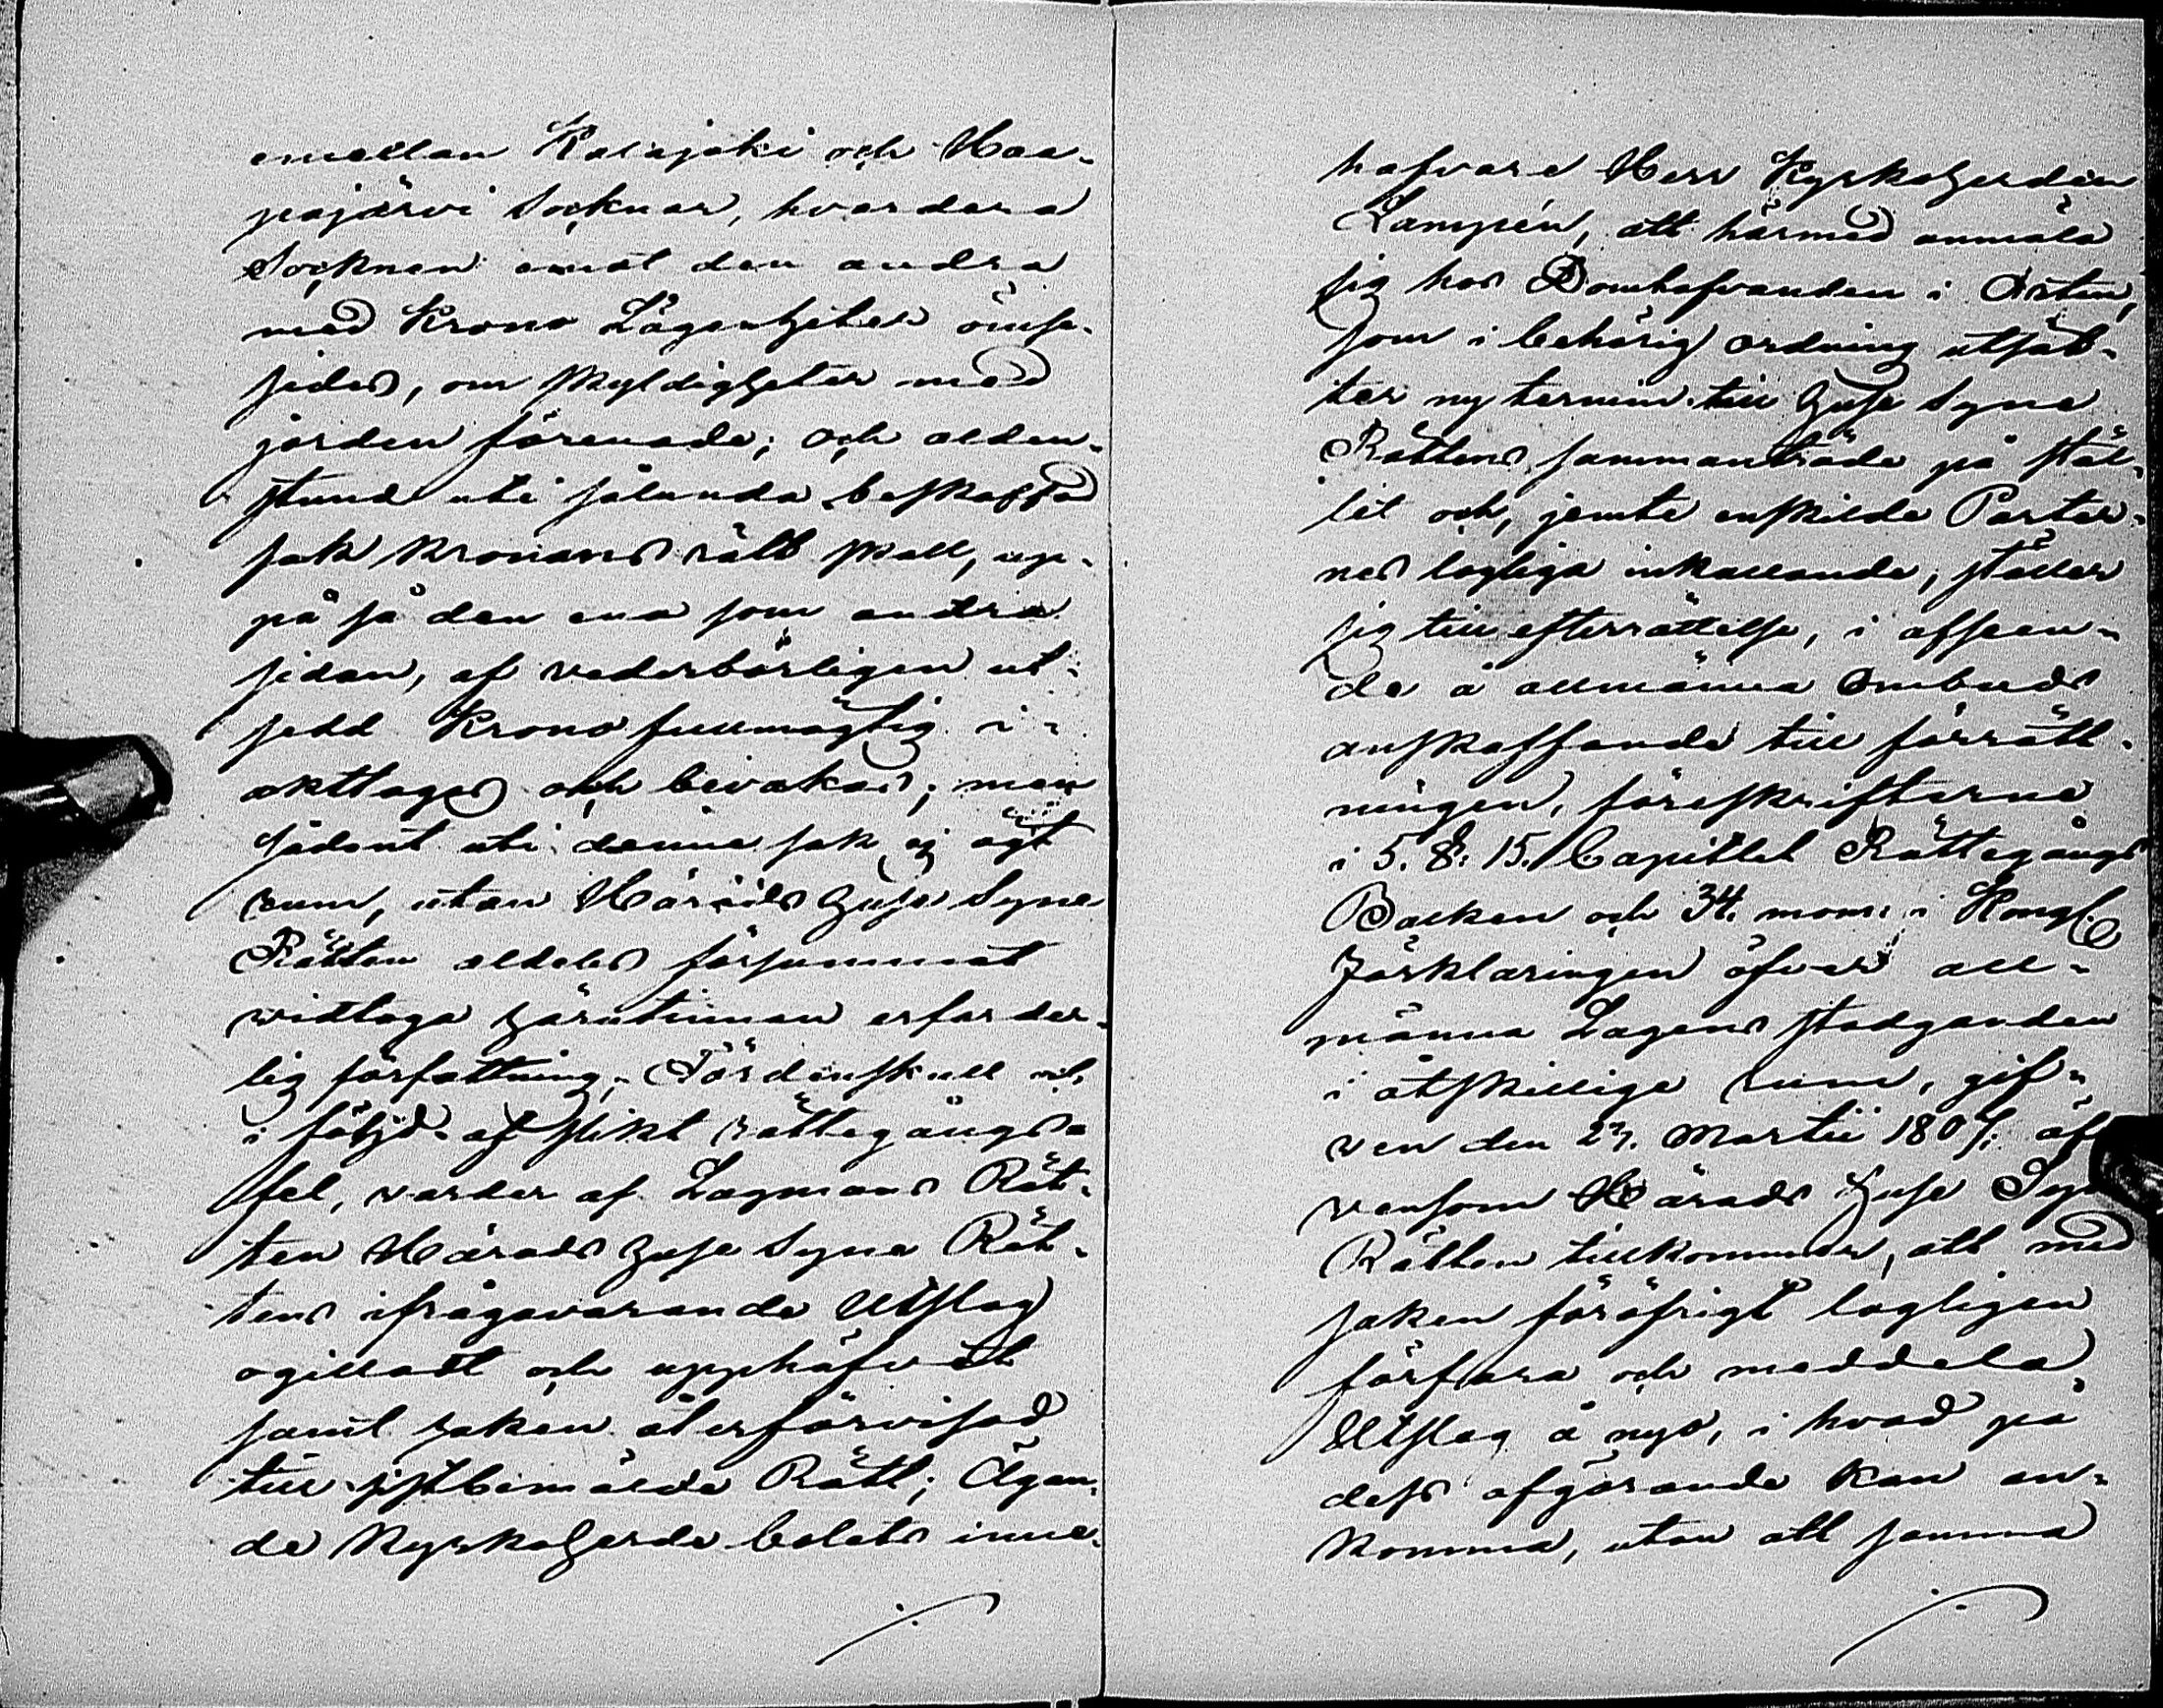 emellan Kalajoki och Haa-
pajärvi Socknar, hvardera
Socknen emot den andra
med Krono Lägenheter ömse-
sides, om skyldigheter med
jorden förenade; och alden-
stund uti sålunda beskaffad
sak Kronans rätt skall, up-
på så den ena som andra
sidan, af vederbörligen ut-
sedd Krono fullmägtig i-
akttagas och bevakas; men
sådant uti denne sak ej ägt
rum, utan Härads Huse Syne
Rätten aldeles försummat
vidtaga härutinnan erforder-
lig författning; Fördenskull och
i följd af slikt rättegångs-
fel, varder af Lagmans Rät-
ten Härads Huse Syne Rät-
tens ifrågavarande Utslag
ogilladt och upphäfvit
samt saken återförvisad
till sistbemälde Rätt; Ägan-
de Kyrkoherde bolets inne-
hafvare Herr Kyrkoherden
Lampén, att härmed anmäla
sig hos Domhafvanden i Orten,
som i behörig ordning utsät-
ter ny termin till Huse Syne
Rättens sammanträde på stäl-
let och, jemte enskilde Parter-
nes lagliga inkallande, ställer
sig till efterrättelse, i afseen-
de å allmänna Ombuds
anskaffande till förrätt-
ningen, föreskrifterne
i 5. §. 15. Capitlet Rättegångs
Balken och 34. mom: i Kongl.
Förklaringen öfver all-
männa Lagens stadganden
i åtskillige rum, gif-
ven den 23. Martii 1807; äf-
vensom Härads Huse Syne
Rätten tillkommer, att med
saken föröfrigt lagligen
förfara och meddela
Utslag å nyo, i hvad på
dess afgörande kan an-
komma, utan att samma